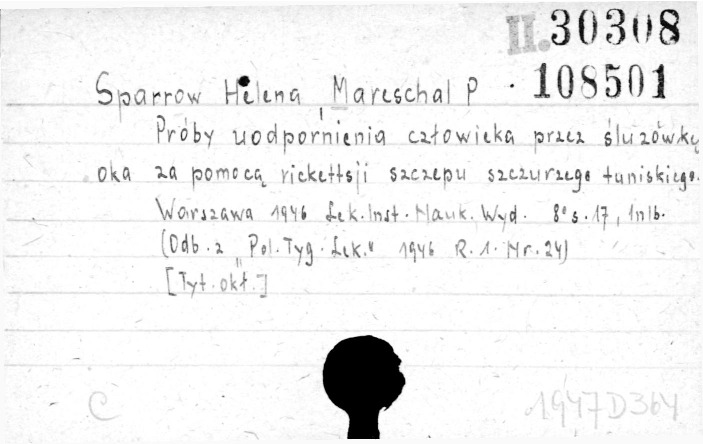 II.30308
108501
Sparrow Helena, Mareschal P.
Próby uodpornienia człowieka przez śluzówkę
oka za pomocą rickettsji szczepu szczurzego tuniskiego.
Warszawa 1946 Lek. Inst. Nauk. Wyd. 8° s. 17, 1 nlb.
(Odb. z „Pol. Tyg. Lek." 1946 R. 1. Nr. 24)
[Tyt. okł.]
C 1947D364